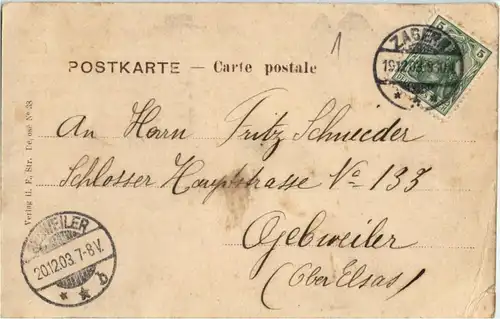 1
ZABERN
19.12.03. 8-9 N.
5
5
POSTKARTE — Carte postale
An Herrn Fritz Schneeder
Schlosser Hauptstrasse No 133
Gebweiler
(Ober Elsas)
GEBWEILER
20.12.03. 7-8 V.
b
Verlag U. F., Str. Deposé Nº 38